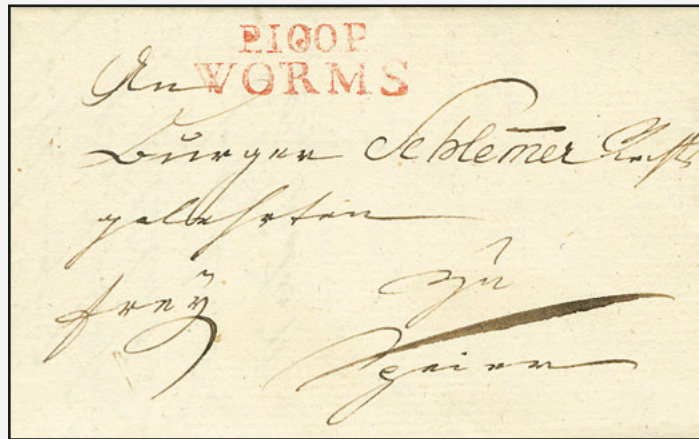 P.100P.
WORMS
An
Burger Schlem̄er Rechts
gelehrten
freÿ zu
Speier